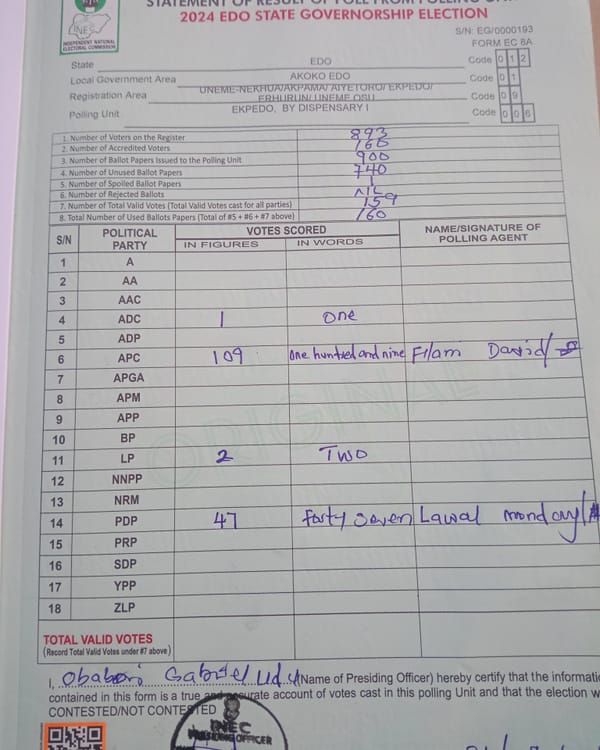 STATEMENT OF RESULT OF POLL FROM POLLING
2024 EDO STATE GOVERNORSHIP ELECTION
INEC
INDEPENDENT NATIONAL
ELECTORAL COMMISSION
S/N: EG/0000193
FORM EC 8A
State EDO Code 0 1 2
Local Government Area AKOKO EDO Code 0 1
Registration Area UNEME-NEKHUA/AKPAMA/ AIYETORO/ EKPEDO/ ERHURUN/ UNEME OSU Code 0 9
Polling Unit EKPEDO, BY DISPENSARY I Code 0 0 6
1. Number of Voters on the Register 893
2. Number of Accredited Voters 160
3. Number of Ballot Papers Issued to the Polling Unit 900
4. Number of Unused Ballot Papers 740
5. Number of Spoiled Ballot Papers 1
6. Number of Rejected Ballots NIL
7. Number of Total Valid Votes (Total Valid Votes cast for all parties) 159
8. Total Number of Used Ballots Papers (Total of #5 + #6 + #7 above) 160
S/N POLITICAL PARTY VOTES SCORED NAME/SIGNATURE OF POLLING AGENT
IN FIGURES IN WORDS
1 A
2 AA
3 AAC
4 ADC 1 one
5 ADP
6 APC 109 one hundred and nine Filami David/
7 APGA
8 APM
9 APP
10 BP
11 LP 2 TWO
12 NNPP
13 NRM
14 PDP 47 forty seven Lawal monday/
15 PRP
16 SDP
17 YPP
18 ZLP
ORIGINAL
TOTAL VALID VOTES
(Record Total Valid Votes under #7 above)
I, Gabriel (Name of Presiding Officer) hereby certify that the
contained in this form is a true and accurate account of votes cast in this polling Unit and that the election
CONTESTED/NOT CONTESTED
INEC
PRESIDING OFFICER